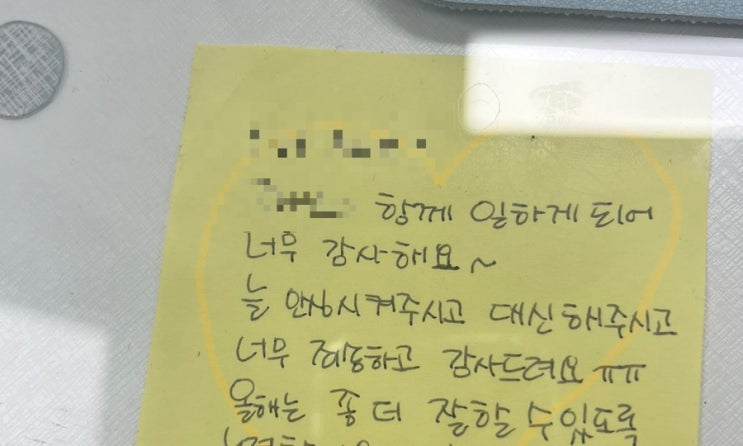 함께 일하게 되어
너무 감사해요~
늘 안심시켜주시고 대신해주시고
너무 죄송하고 감사드려요 ㅠㅠ
올해는 좀 더 잘할 수 있도록